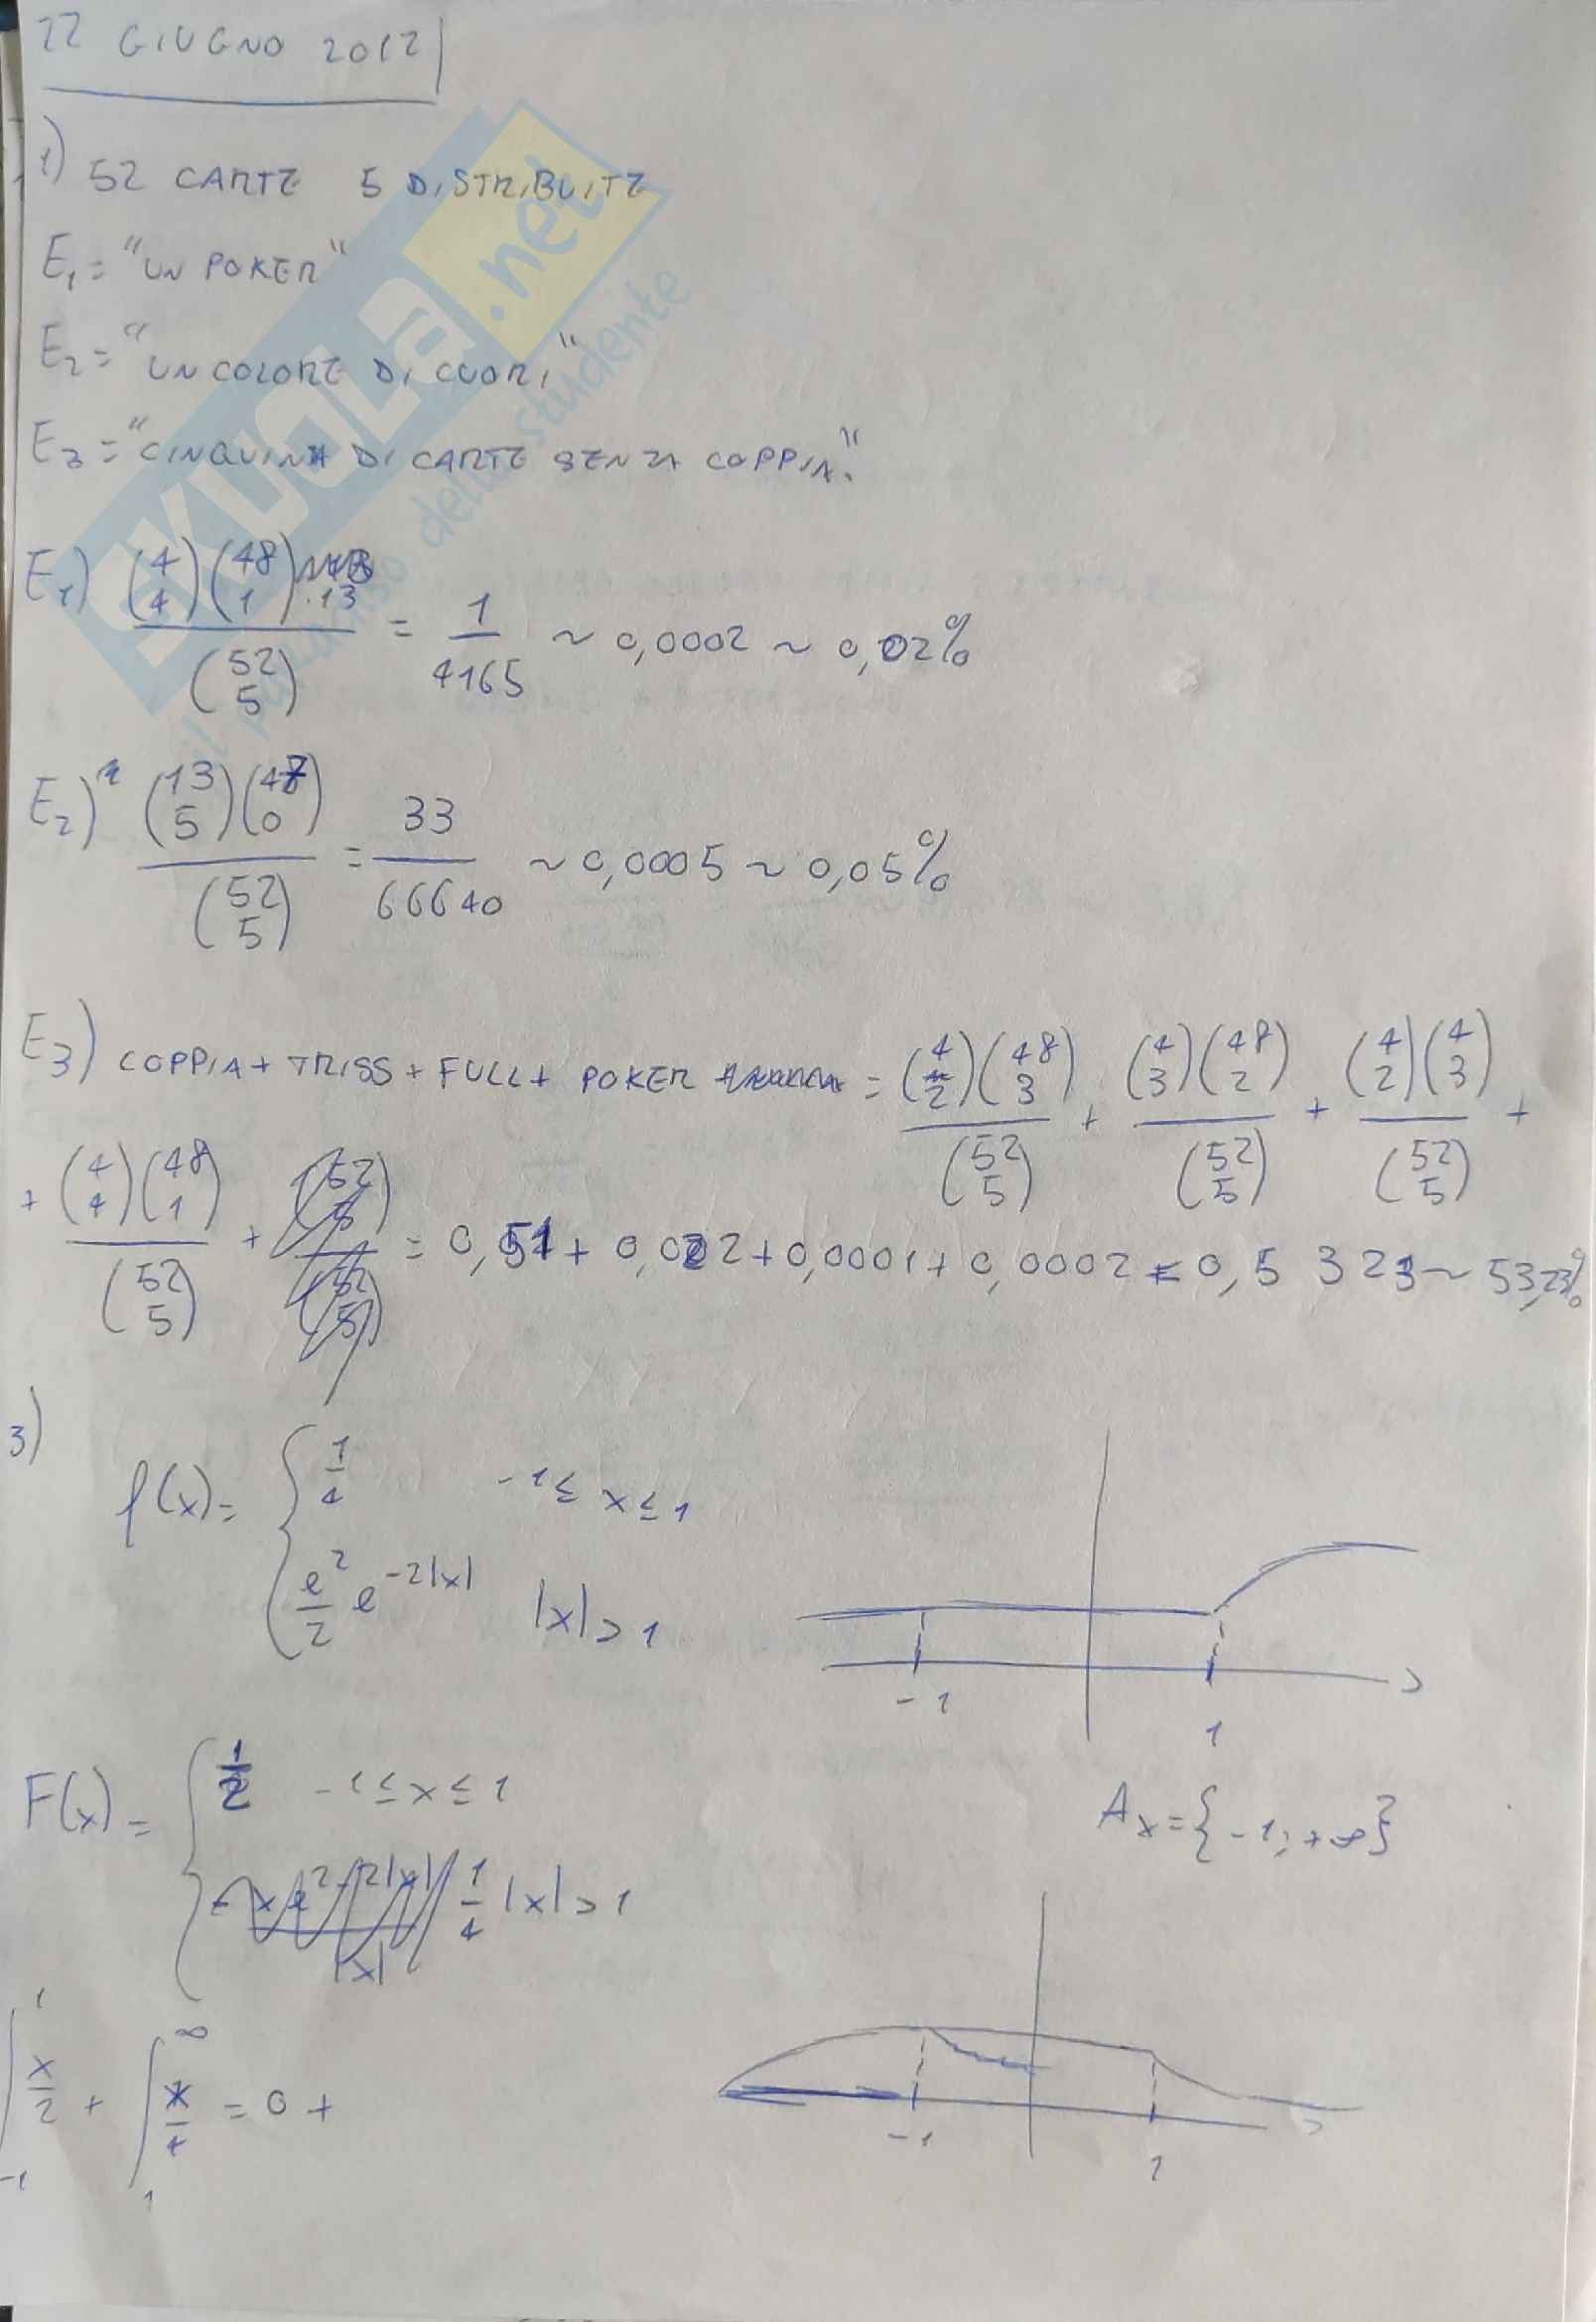 22 GIUGNO 2012
1) 52 CARTE 5 DISTRIBUITE
E₁ = "UN POKER"
E₂ = "UN COLORE DI CUORI"
E₃ = "CINQUINA DI CARTE SENZA COPPIA."
E₁) (4 4)(48 1)·13 / (52 5) = 1/4165 ~ 0,0002 ~ 0,02%
E₂) (13 5)(47 0) / (52 5) = 33/66640 ~ 0,0005 ~ 0,05%
E₃) COPPIA + TRISS + FULL + POKER = (4 2)(48 3) / (52 5) + (4 3)(48 2) / (52 5) + (4 2)(4 3) / (52 5) +
+ (4 4)(48 1) / (52 5) + = 0,51 + 0,022 + 0,0001 + 0,0002 = 0,5323 ~ 53,23%
3)
f(x) = { 1/4 -1 ≤ x ≤ 1
e²/2 e^(-2|x|) |x| > 1
-1 1
F(x) = { 1/2 -1 ≤ x ≤ 1
1/4 |x| > 1
Aₓ = {-1; +∞}
∫₋₁¹ x/2 + ∫₁^∞ x/4 = 0 +
-1 1
SKUOLA.net
il paradiso dello studente